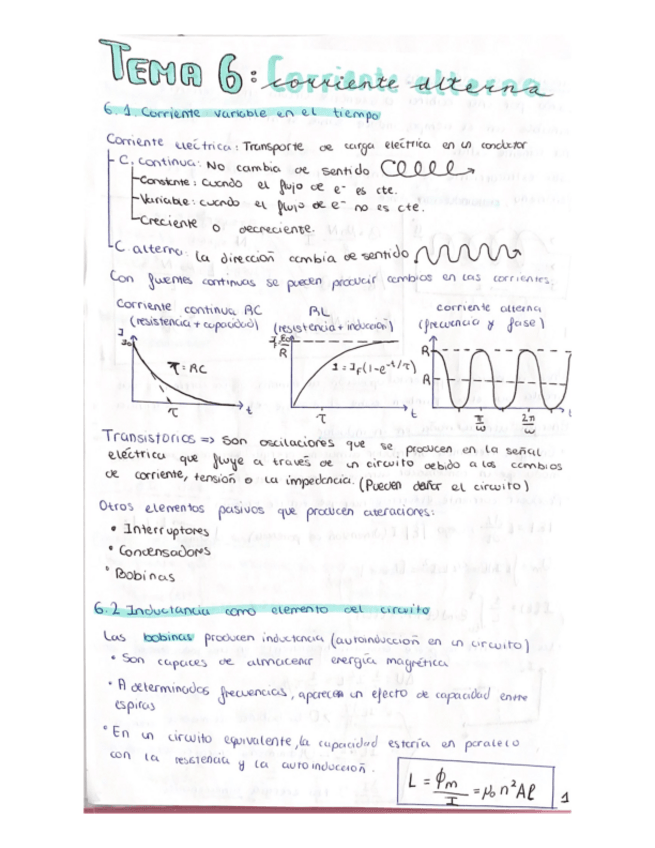 TEMA 6: corriente alterna
6.1. Corriente variable en el tiempo
Corriente eléctrica: Transporte de carga eléctrica en un conductor
C. continua: No cambia de sentido
Constante: cuando el flujo de e- es cte.
Variable: cuando el flujo de e- no es cte.
Creciente o decreciente.
C. alterna: la dirección cambia de sentido
Con fuentes continuas se pueden producir cambios en las corrientes:
Corriente continua RC
(resistencia + capacidad)
RL
(resistencia + inducción)
corriente alterna
(frecuencia y fase)
I
I₀
τ = RC
τ
t
R
I = I_f(1-e^-t/τ)
τ
t
R
R
π/ω
2π/ω
t
Transistorios => Son oscilaciones que se producen en la señal
eléctrica que fluye a través de un circuito debido a los cambios
de corriente, tensión o la impedancia. (Pueden dañar el circuito)
Otros elementos pasivos que producen alteraciones:
• Interruptores
• Condensadores
• Bobinas
6.2 Inductancia como elemento del circuito
Las bobinas producen inductancia (autoinducción en un circuito)
• Son capaces de almacenar energía magnética
• A determinadas frecuencias, aparecen un efecto de capacidad entre
espiras
• En un circuito equivalente, la capacidad estaría en paralelo
con la resistencia y la autoinducción.
L = ϕm/I = μ₀ n² A ℓ
1